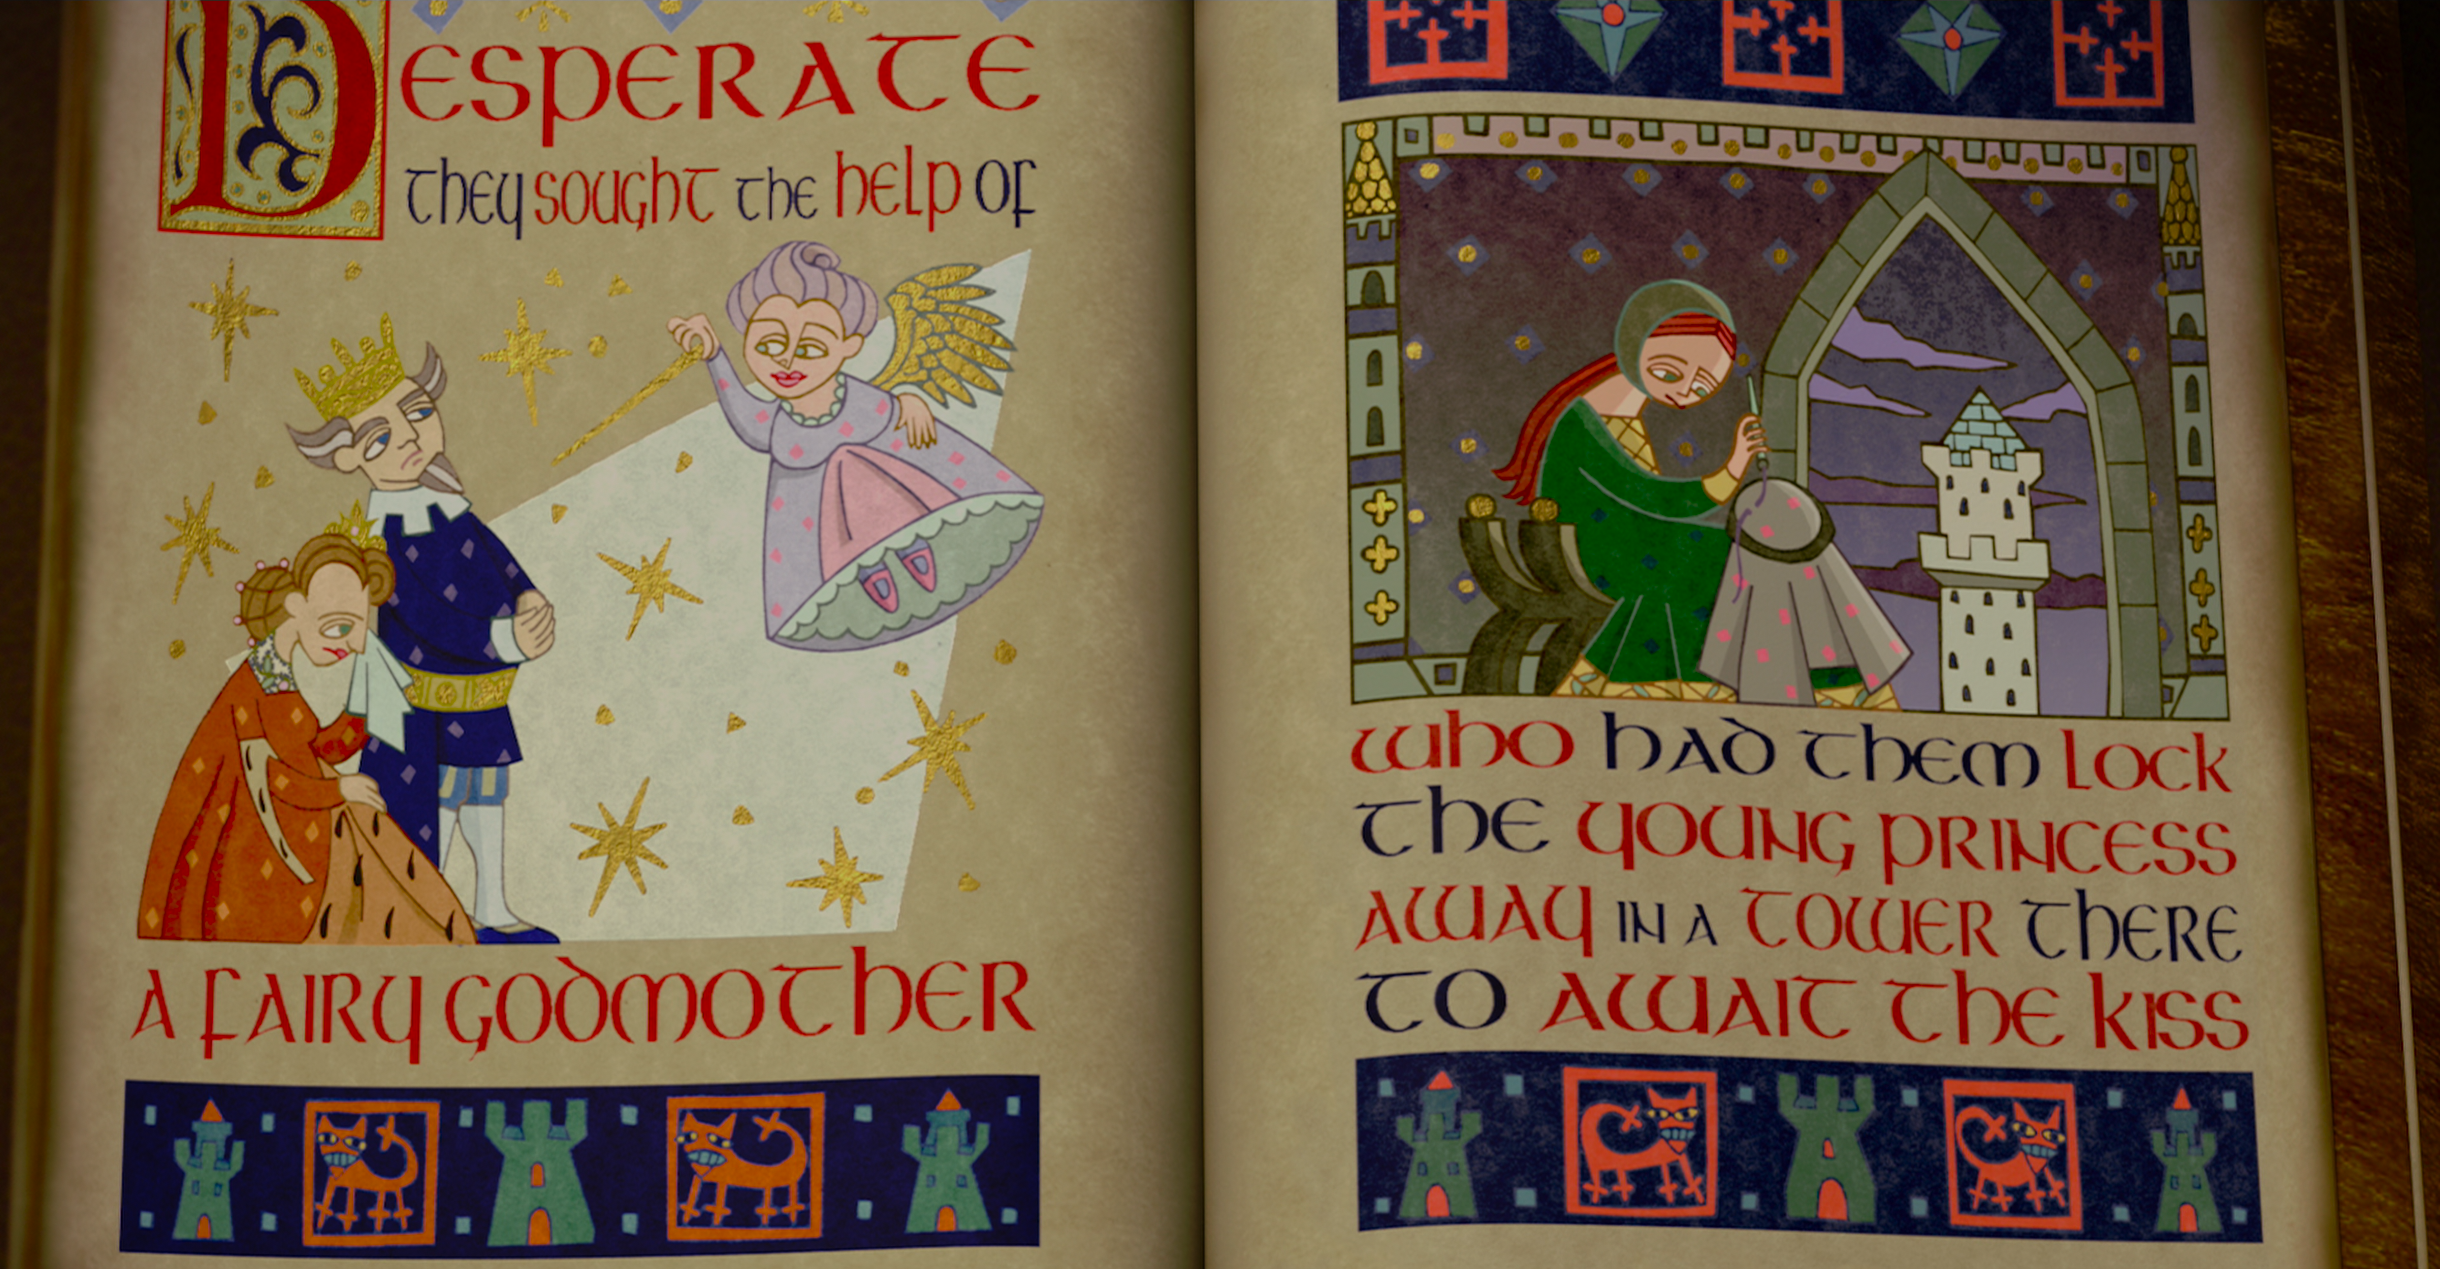 Desperate
they sought the help of
a fairy godmother
who had them lock
the young princess
away in a tower there
to await the kiss